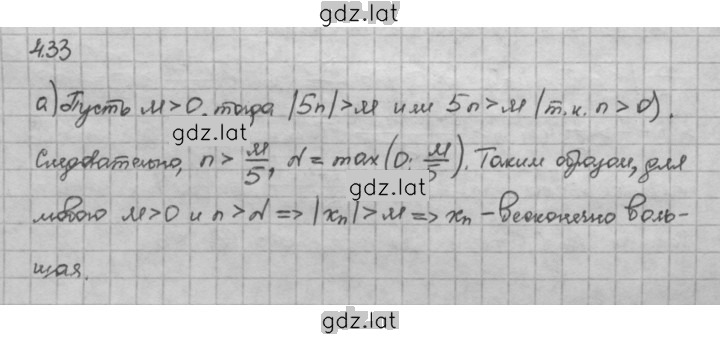 gdz.lat
4.33
а) Пусть M > 0, тогда |5n| > M или 5n > M (т.к. n > 0).
gdz.lat
Следовательно, n > M/5, N = max(0; M/5). Таким образом, для
gdz.lat
любого M > 0 и n > N => |xₙ| > M => xₙ - бесконечно боль-
шая.
gdz.lat